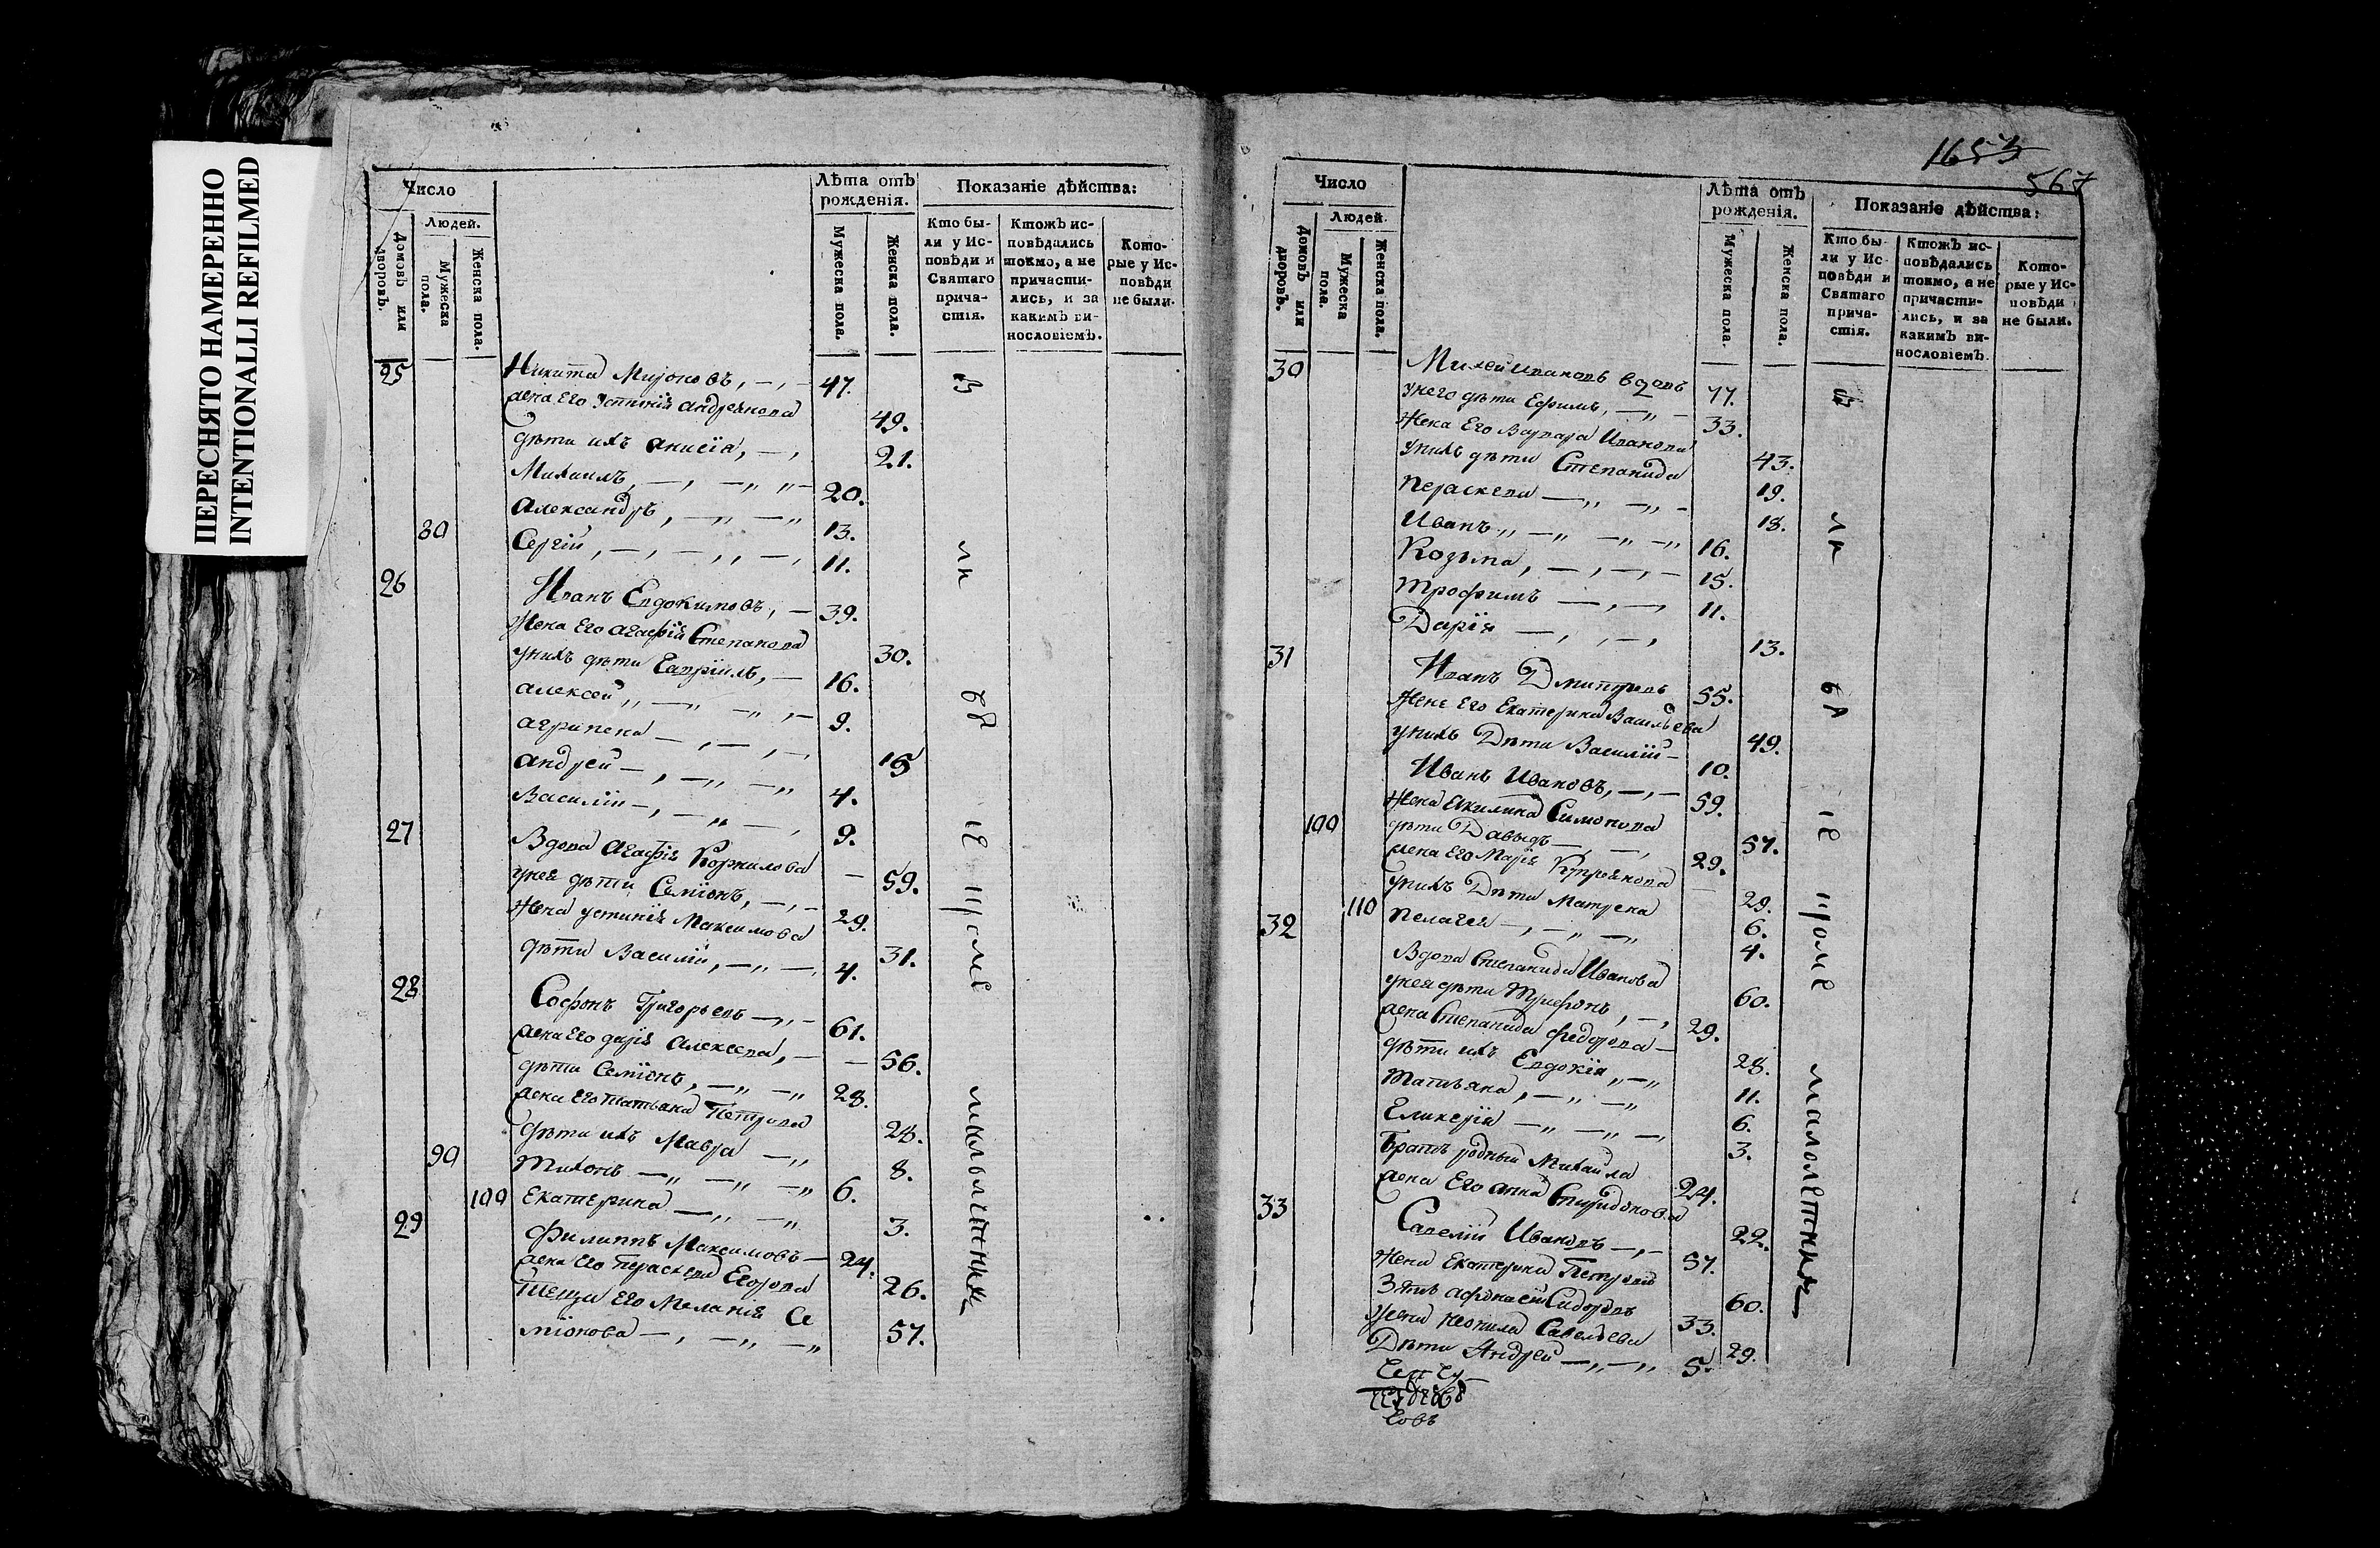 ПЕРЕСНЯТО НАМЕРЕННО
INTENTIONALLI REFILMED
Число
Людей.
Домовъ или дворовъ.
Мужеска пола.
Женска пола.
Лѣта отъ рожденія.
Мужеска пола.
Женска пола.
Показаніе дѣйства:
Кто бы-
ли у Ис-
повѣди и
Святаго
прича-
стія.
Ктожъ ис-
повѣдались
токмо, а не
причасти-
лись, и за
какимъ ви-
нословіемъ.
Кото-
рые у Ис-
повѣди
не были.
25 Никита Мироновъ, 47.
жена Его Устинія Андреянова 49.
дѣти ихъ Анисіа, 21.
Михаилъ, 20.
Александръ, 13.
80 Сергій, 11.
26 Иванъ Евдокимовъ, 39.
Жена Его Агафія Степанова 30.
у нихъ дѣти Гавріилъ, 16.
Алексей 9.
Агрипена 15
Андрей 4.
Василій 9.
27 Вдова Агафія Корнилова 59.
у нея дѣти Семіонъ, 29.
Жена Устинія Максимова 31.
дѣти Василій, 4.
28 Софонъ Григорьевъ 61.
жена Его дарія Алексеева, 56.
дѣти Семіонъ, 28.
жена Его татьяна Петрова 28.
дѣти ихъ Мавра 8.
90 Тихонъ 6.
100 Екатерина 3.
29 Филиппъ Максимовъ 24.
жена Его Параскева Егорова 26.
Теща Его Меланія Се
міонова 57.
всѣ кромѣ малолѣтнихъ
1653
567
Число
Людей.
Домовъ или дворовъ.
Мужеска пола.
Женска пола.
Лѣта отъ рожденія.
Мужеска пола.
Женска пола.
Показаніе дѣйства:
Кто бы-
ли у Ис-
повѣди и
Святаго
прича-
стія.
Ктожъ ис-
повѣдались
токмо, а не
причасти-
лись, и за
какимъ ви-
нословіемъ.
Кото-
рые у Ис-
повѣди
не были.
30 Михей Ивановъ вдовъ 77.
у него дѣти Ефимъ, 33.
Жена Его Варвара Иванова 43.
у нихъ дѣти Степанида 19.
Пераскева 18.
Иванъ 16.
Козьма, 15.
Трофимъ 11.
Дарія 13.
31 Иванъ Дмитревъ 55.
Жена Его Екатерина Васильева 49.
у нихъ Дѣти Василій 10.
Иванъ Ивановъ, 59.
Жена Акилина Симонова 57.
100 дѣти Давыдъ 29.
жена Его Марія Купреянова 29.
у нихъ Дѣти Матрена 6.
110 Пелагея 4.
32 Вдова Степанида Иванова 60.
у нея дѣти Трифонъ, 29.
жена Степанида Федорова 28.
дѣти ихъ Евдокія 11.
Татьяна, 6.
Гликерія 3.
Братъ родный Михайла 24.
жена Его Анна Спиридонова 22.
33 Савелій Ивановъ 57.
Жена Екатерина Петрова 60.
Зять Афонасій Сидоровъ 33.
Жена Неонила Савельева 29.
Дѣти Андрей 5.
кромѣ малолѣтнихъ